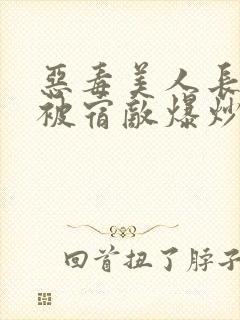 惡毒美人長
被宿敵爆炒
回首扭了脖子